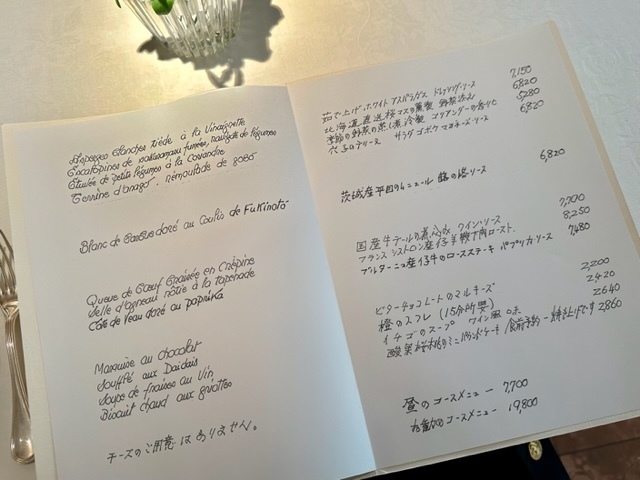 Asperges blanches tiède à la Vinaigrette
Escalopines de sakuramasu fumées, navigote de légumes
Étuvée de petits légumes à la coriandre
Terrine d'anago - rémoulade de gobo
Blanc de Barbue doré au Coulis de Fukinoto
Queue de Bœuf Braisée en Crépine
Selle d'agneau rôtie à la tapenade
Côte de Veau doré au paprika
Marquise au chocolat
Soufflé aux Daidais
Soupe de fraises au Vin
Biscuit chaud aux griottes
チーズのご用意はありません。
茹で上げホワイトアスパラガス ドレッシングソース 7,150
北海道直送桜マスの燻製 野菜添え 6,820
季節の野菜の蒸し煮冷製 コリアンダーの香りと 5,280
穴子のテリーヌ サラダゴボウマヨネーズソース 6,820
茨城産平目のムニエール 蕗の薹ソース 6,820
国産牛テールの煮込み ワインソース 7,700
フランス シストロン産仔羊鞍下肉ロースト 8,250
ブルターニュ産仔牛のロースステーキ パプリカソース 7,480
ビターチョコレートのマルキーズ 2,200
橙のスフレ (15分所要) 2,420
イチゴのスープ ワイン風味 2,640
酸葉桜桃のミニパウンドケーキ 食前予約 - 焼き上げです 2,860
昼のコースメニュー - 7,700
お勧めコースメニュー - 19,800